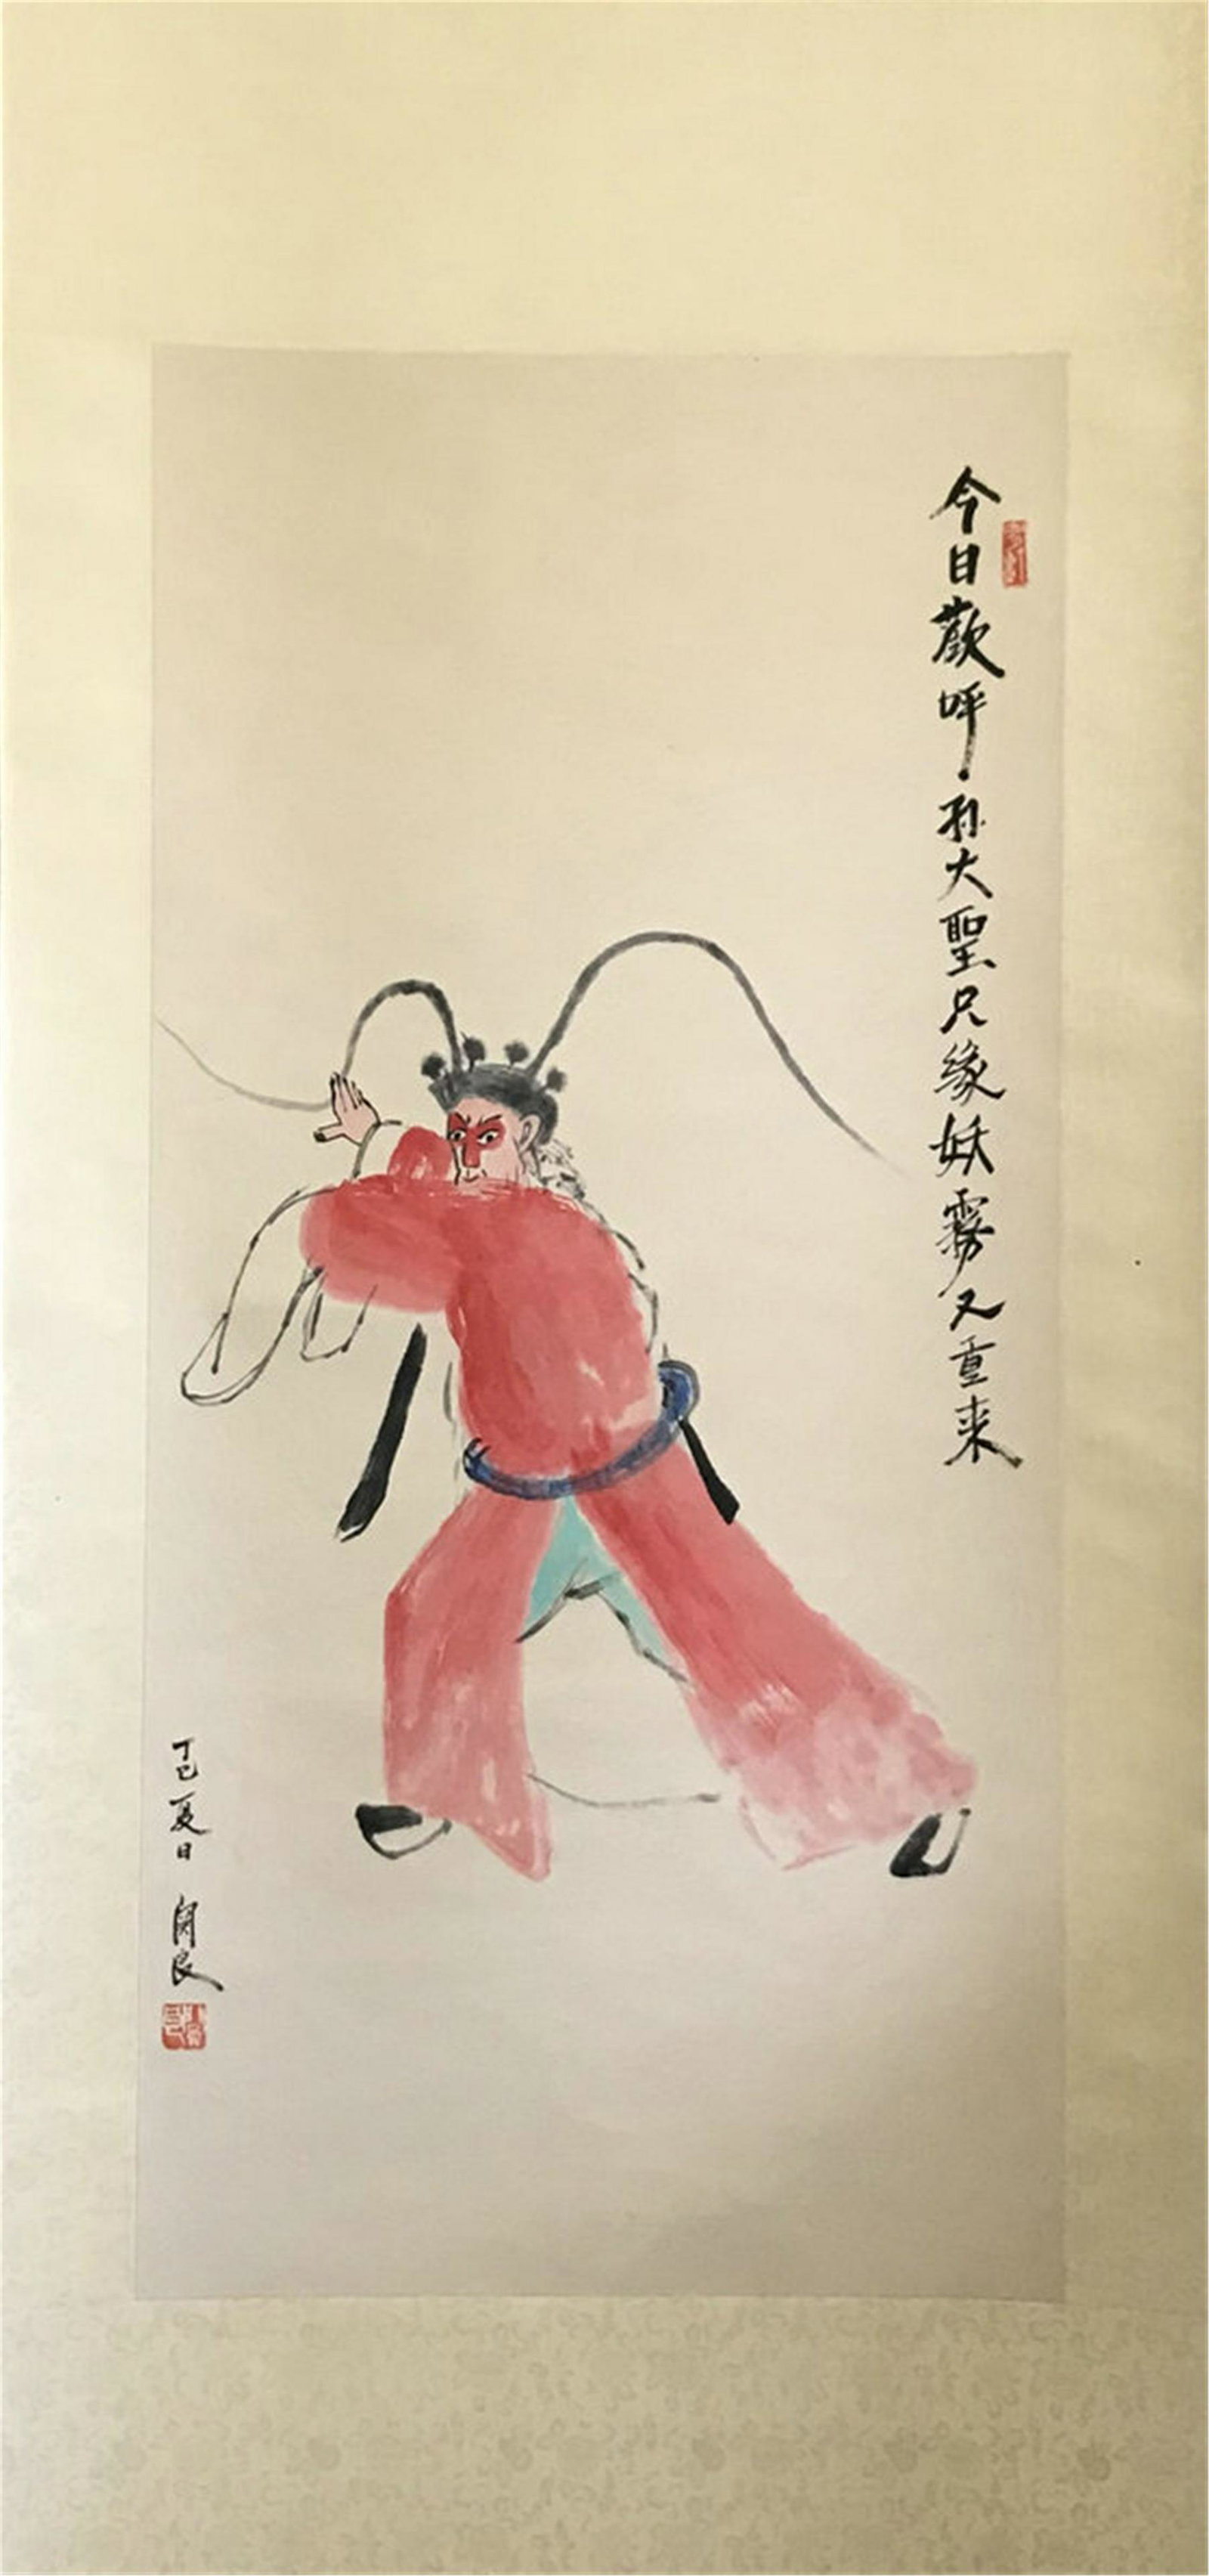 今日歡呼·孫大聖只緣妖霧又重来
丁巳夏日 關良